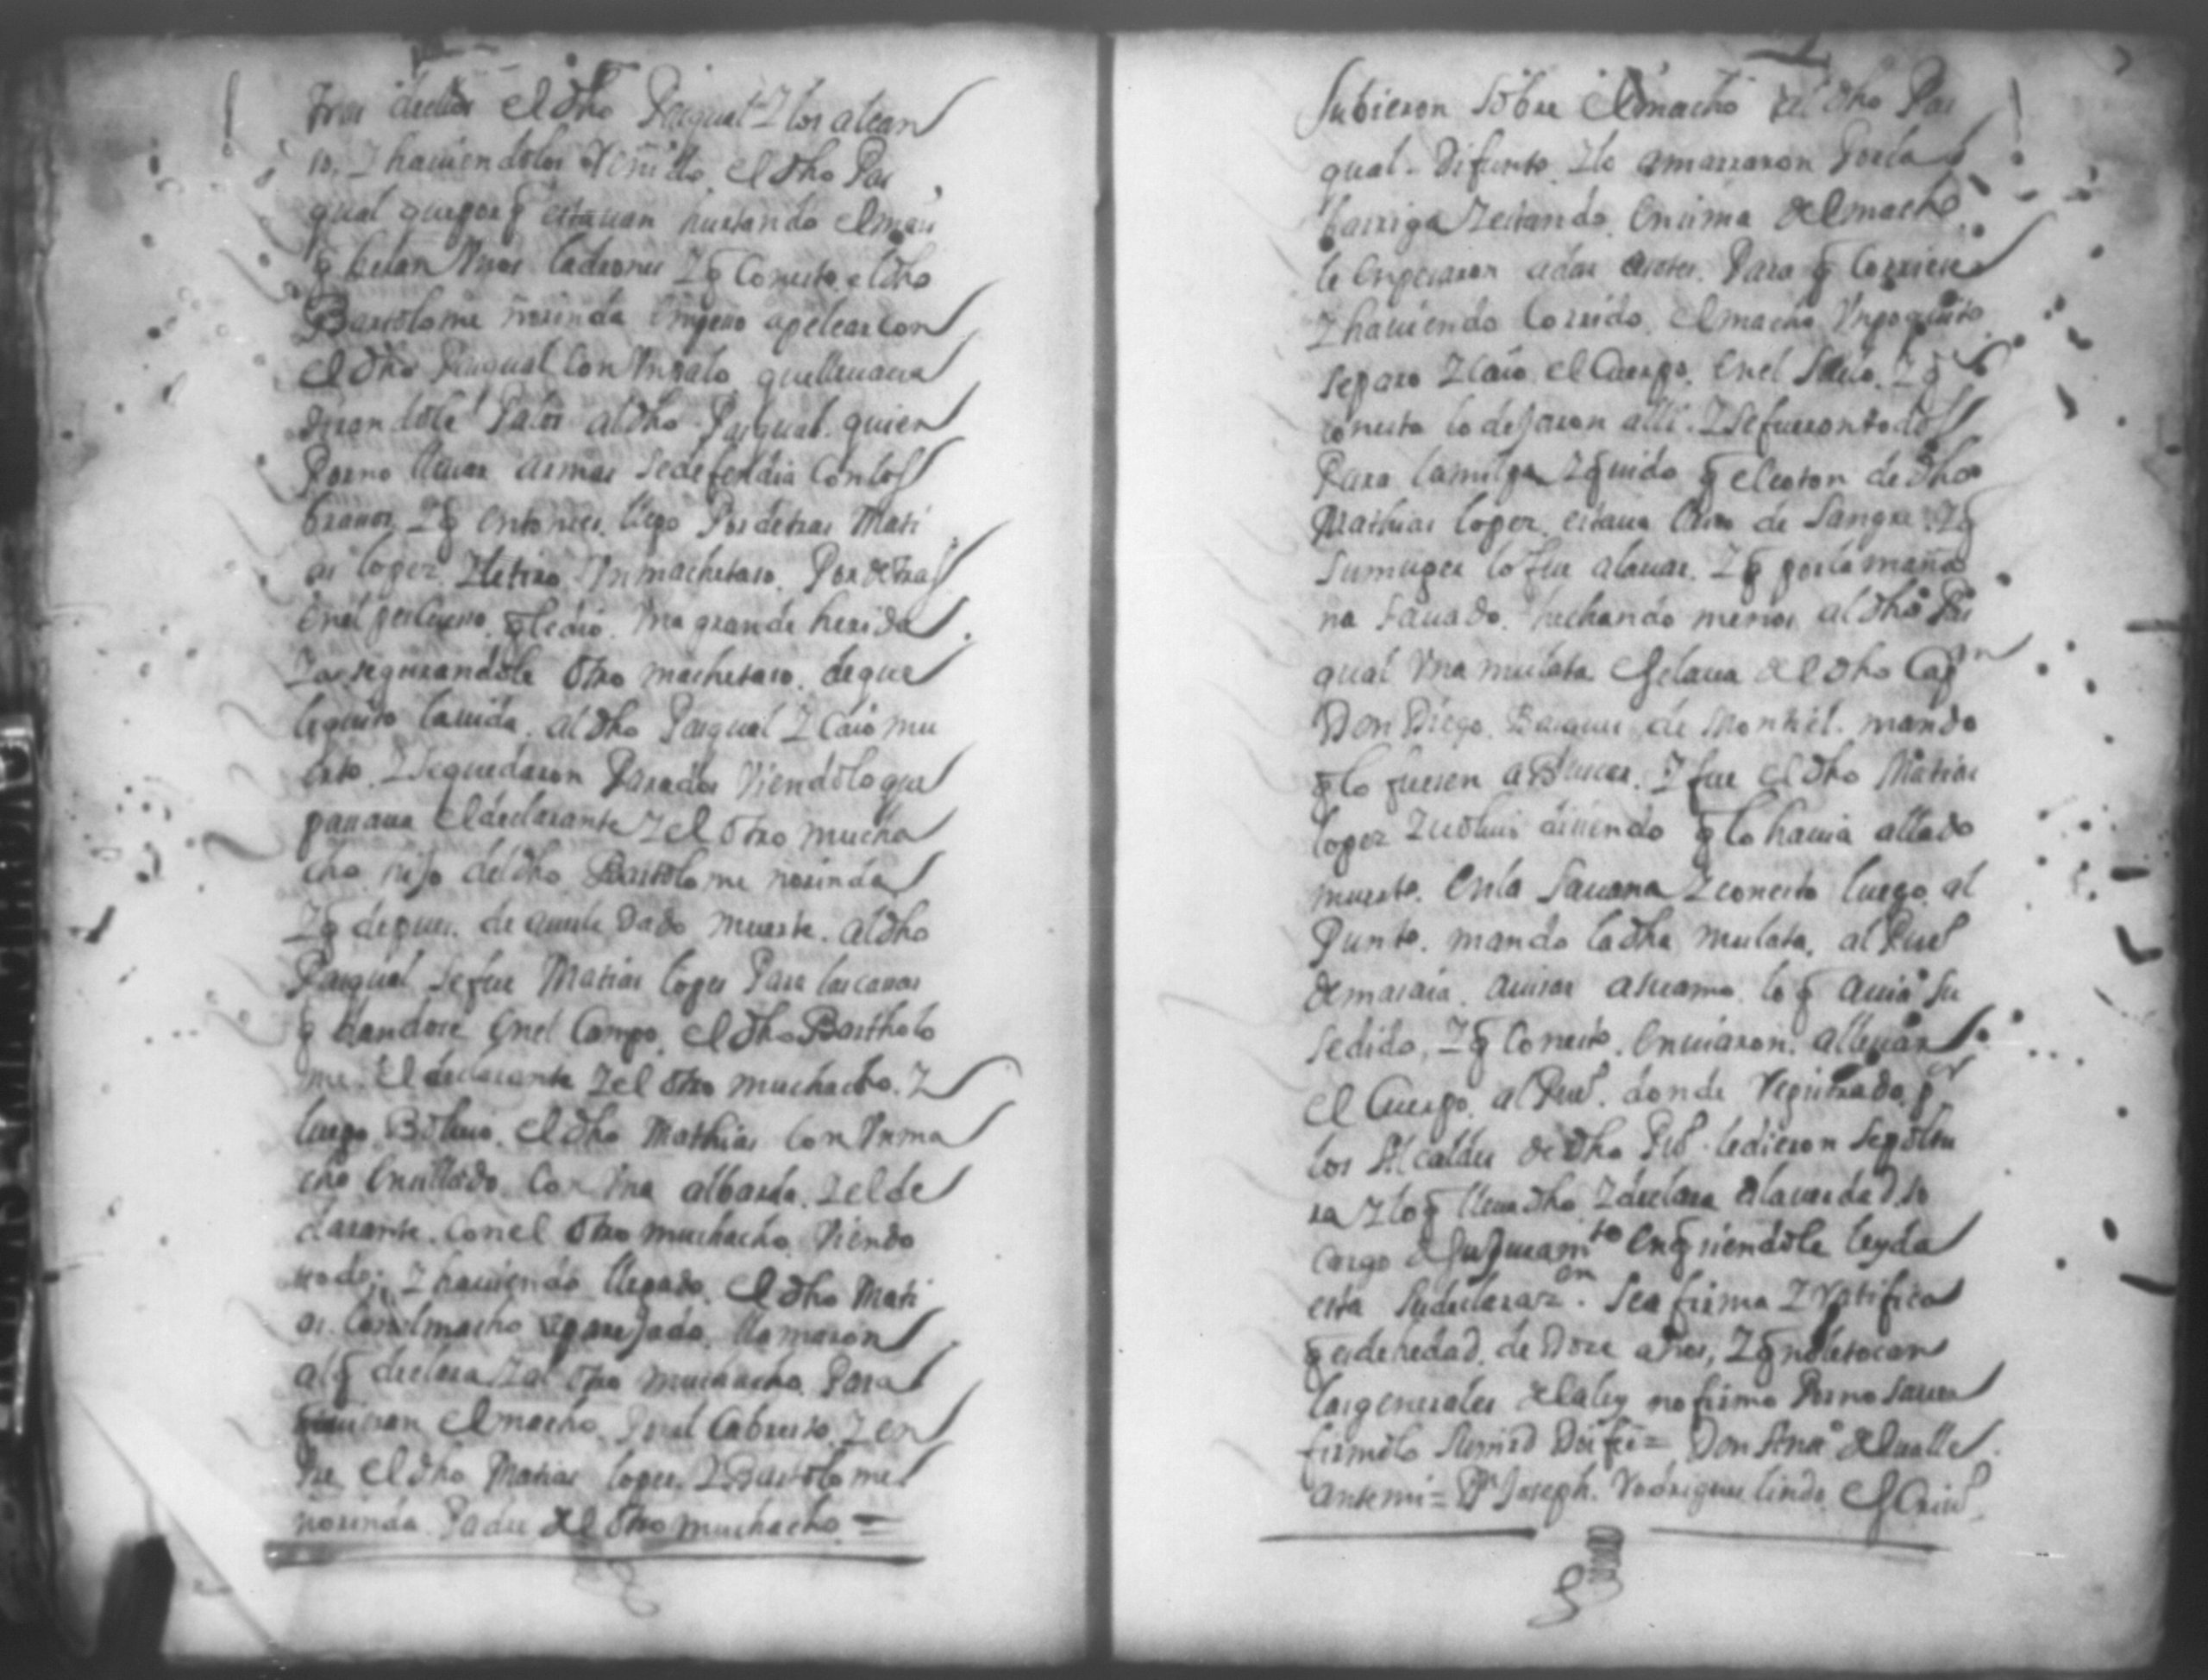 tras dellos el dho Pasqual Z los alcan
so. Z hauiendoles Reñido. el dho Pas
qual quepor q̄ estauan hurtando elmais
q̄ heran Vnos ladrones Z q̄ Conesto. eldho
Bartolome norinda Empeso apelearcon
el dho Pasqual Con Vnpalo quelleuaua
tirandole Palos aldho Pasqual. quien
Porno lleuar armas sedefendia Conlos
brasos. Z q̄ entonses. llego Pordetras Mati
as lopez Zletiro Vnmachetaso. Pordetras
Enel pescueso. q̄ledio. Vna grande herida
Z asegurandole Otro machetaso. deque
lequito lauida. al dho Pasqual Z Caio mu
erto. Zsequedaron Parados Viendoloque
pasaua eldeclarante Zel Otro mucha
cho hijo deldho Bartolome norinda
Z q̄ despues. de auerle Dado muerte. aldho
Pasqual sefue Matias lopes Para lascasas
q̄ dandose Enel Campo. el dho Bartholo
me. El declarante Zel otro muchacho. Z
luego Boluio. el dho Mathias Con Vnma
cho Ensillado Con Vna albarda. Zelde
clarante. Conel Otro muchacho Viendo
todo; Z hauiendo llegado. el dho Mati
as. Conelmacho aparejado. llamaron
alq̄ declara Zal Otro muchacho Para
q̄tuuieran elmacho. Porel Cabresto. Z en
tre el dho Matias lopes. ZBartolome
norinda Padre del Otro muchacho =
Subieron Sobre elmacho al dho Pas
qual. Difunto Zlo amarraron Porla
barriga Zestando. Ensima delmacho
le Enpesaron adar asotes. Para q̄ Corriese
Z hauiendo Corrido. elmacho Vnpoquito
separo Zcaio el Cuerpo. Enel Suelo. Z q̄
conesto lo dejaron alli. Zsefueron todos
Para lamilpa Z q̄uido q̄ elcoton de dho
Mathias lopez. estaua lleno de Sangre. Z q̄
Sumuger lo fue alauar. Z q̄ porla maña
na Sauado. hechando menos al dho Pas
qual Vna mulata Esclaua del dho Capn
Don Diego. Basques de Montiel. mando
q̄lo fuesen aBuscar. Z fue el dho Matias
lopez Zboluio disiendo q̄lo hauia allado
muerto. Enla Sauana Zconesto luego. al
Punto. mando ladha mulata. al Pueo
demasaia. auisar asuamo. lo q̄ auia Su
sedido, Z q̄ Conesto. Enuiaron. alleuar
el Cuerpo. al Pueo. donde Registrado. pr
los Alcaldes de dho Pueo. ledieron sepoltu
ra Zloq̄ lleuadho Zdeclara eslauerdad. so
cargo desujuramto Enq̄ siendole leyda
esta Sudeclarazon. Sea firma Zratifica
q̄ esdehedad. de Dose años, Z q̄noletocan
lasgenerales delaley nofirmo Porno sauer
firmolo sumrd Doifee = Don Anto delualle
Antemi = Pr Joseph. Rodrigues lindo EsCriuo